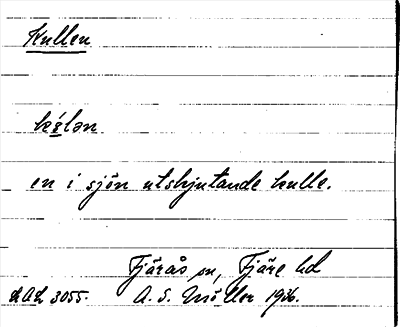 Kullen
kɤ́lən
en i sjön utskjutande kulle.
Fjärås sn, Fjäre hd
DAL 3055. A. S. Möller 1936.